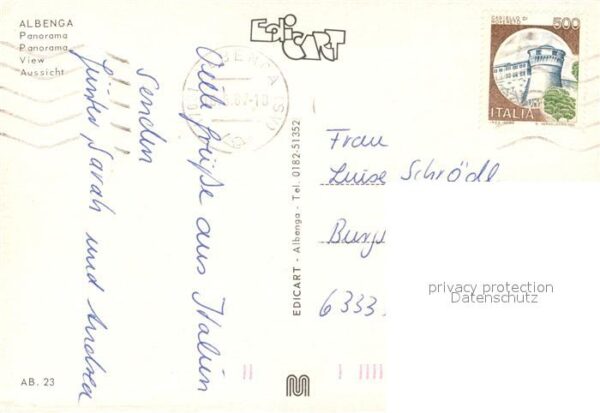 ALBENGA
Panorama
Panorama
View
Aussicht
EdiCART
CASTELLO DI
ROVERETO
500
ITALIA
ALBENGA (SV)
Viele Grüße aus Italien
senden
Günter Sarah und Andrea
EDICART - Albenga - Tel. 0182-51352
Frau
Luise Schrödl
Burgs
6333
privacy protection
Datenschutz
AB. 23
M